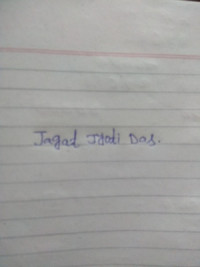 Jagat Jyoti Das.